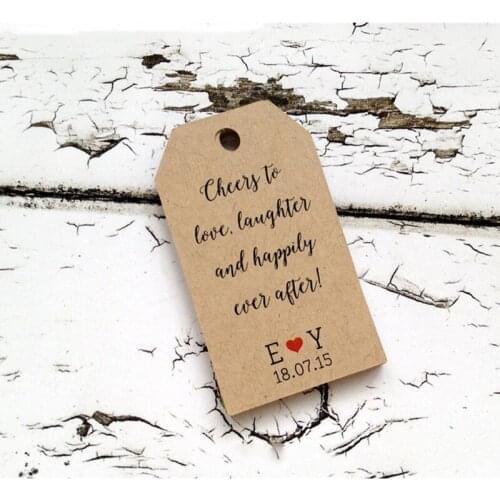 Cheers to
love, laughter
and happily
ever after!
E ♥ Y
18.07.15